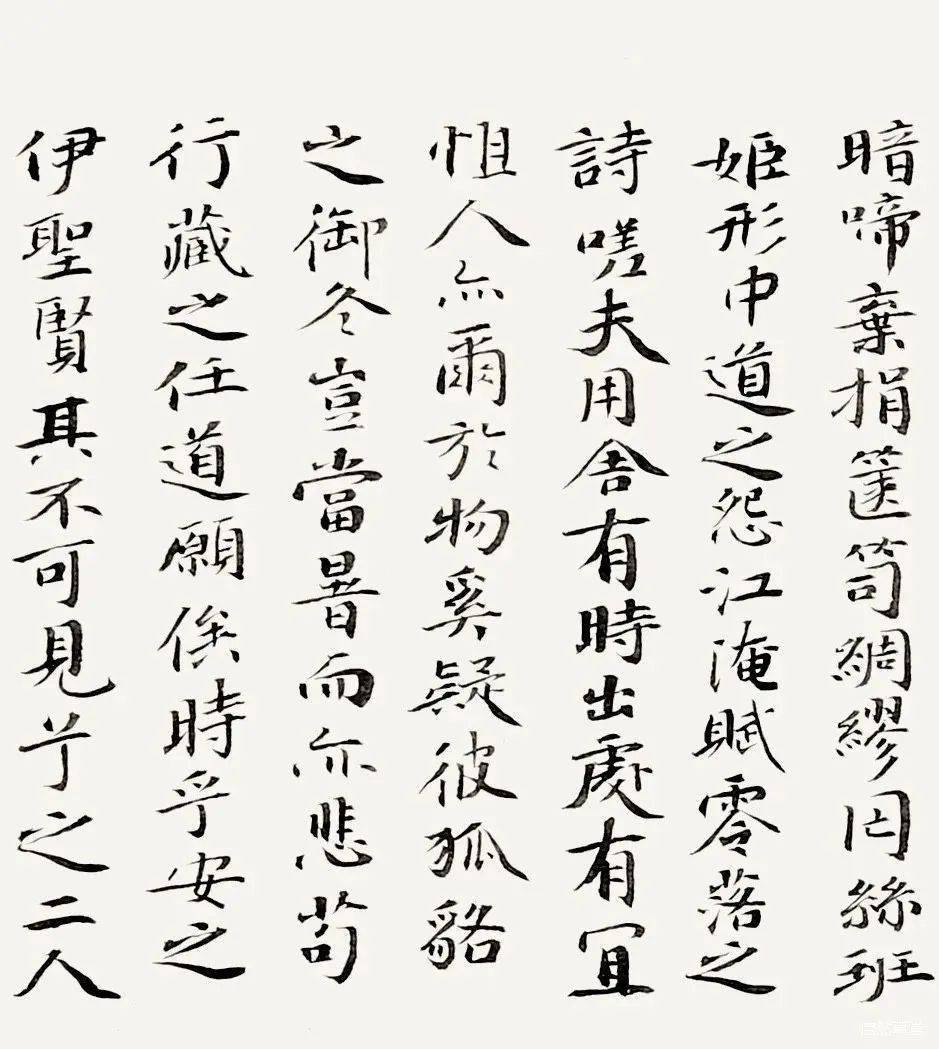 暗啼棄捐篋笥綢繆网絲班
姬形中道之怨江淹賦零落之
詩嗟夫用舍有時出處有宜
怛人亦爾於物奚疑彼狐貉
之御冬豈當暑而亦悲苟
行藏之任道願俟時乎安之
伊聖賢其不可見兮之二人